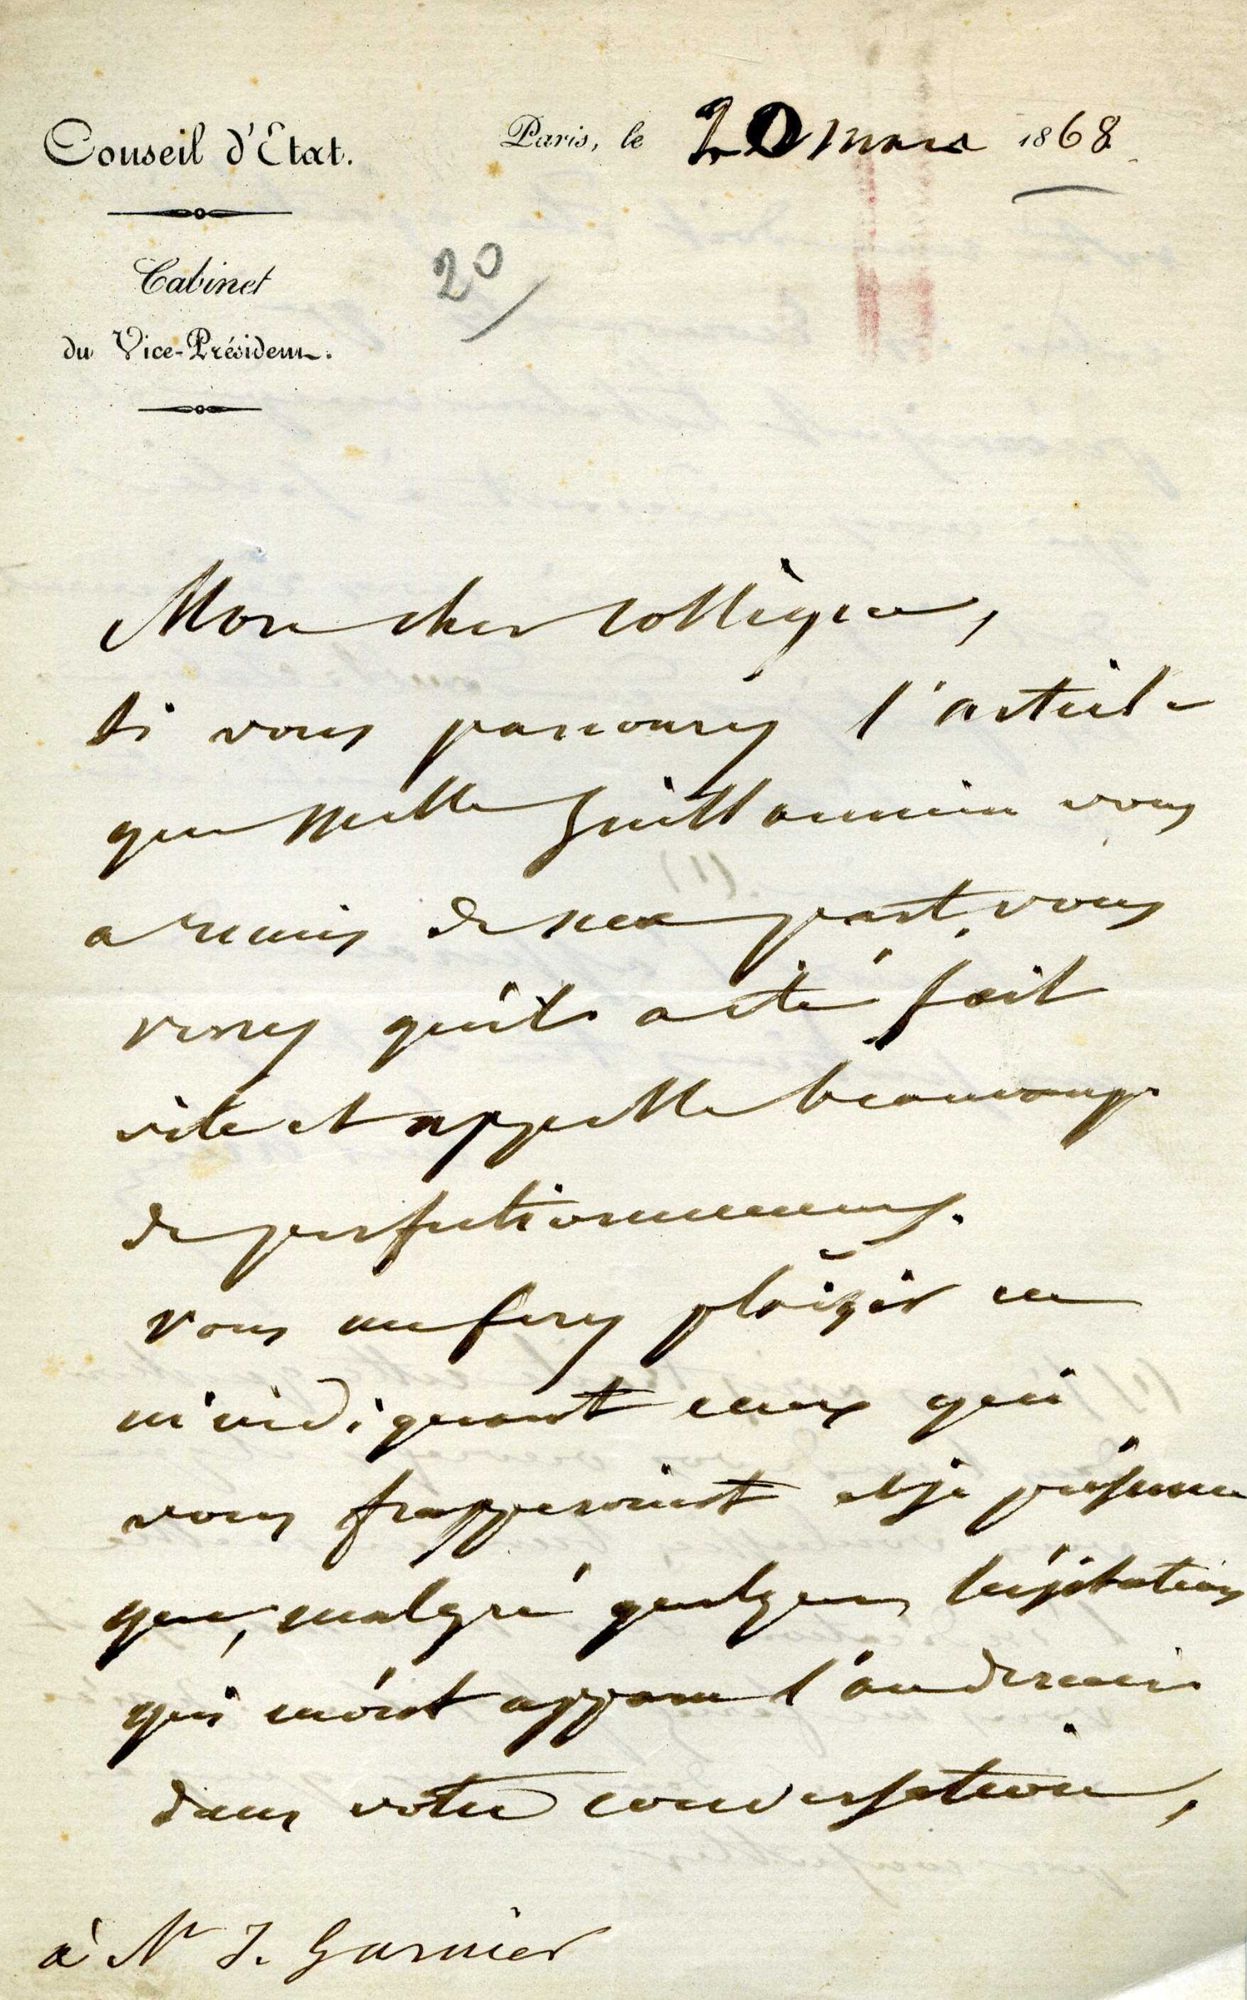 Conseil d'Etat.
Paris, le 20 mars 1868
Cabinet
du Vice-Président.
20
Mon cher collègue,
si vous parcourez l'article
que Melle Guillaumin vous
a remis de ma part, vous
verrez qu'il a été fait
vite et appelle beaucoup
de perfectionnemens.
Vous me ferez plaisir en
m'indiquant ceux qui
vous frapperoient et je présume
que, malgré quelques hésitations
qui m'ont apparu l'an dernier
dans votre conversation,
à Mr J. Garnier